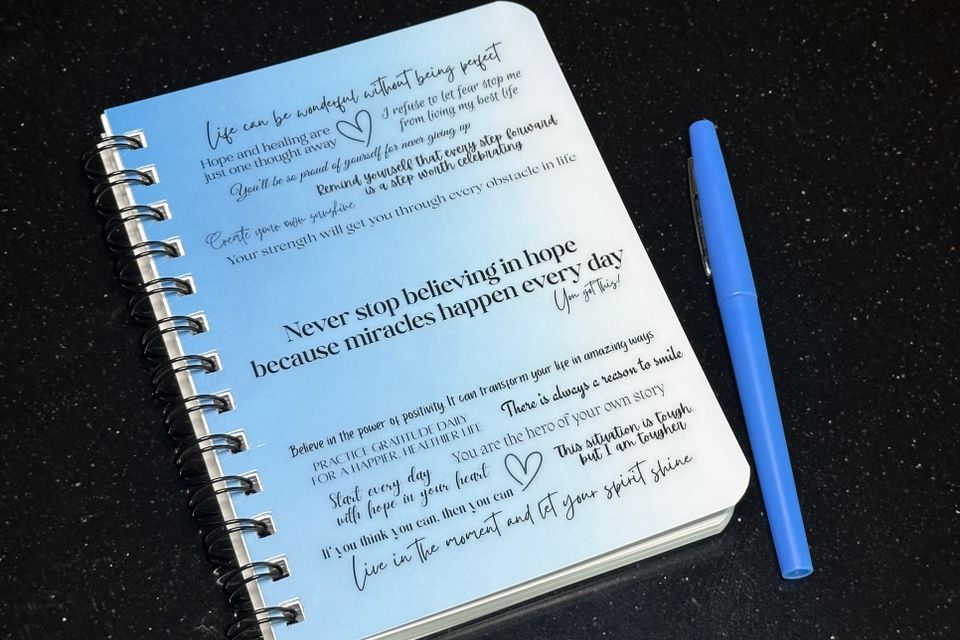 Life can be wonderful without being perfect
Hope and healing are
just one thought away
I refuse to let fear stop me
from living my best life
You'll be so proud of yourself for never giving up
Remind yourself that every step forward
is a step worth celebrating
Create your own sunshine
Your strength will get you through every obstacle in life
Never stop believing in hope
because miracles happen every day
You got this!
Believe in the power of positivity It can transform your life in amazing ways
PRACTICE GRATITUDE DAILY
FOR A HAPPIER, HEALTHIER LIFE
There is always a reason to smile
You are the hero of your own story
Start every day
with hope in your heart
This situation is tough
but I am tougher
If you think you can, then you can
Live in the moment and let your spirit shine